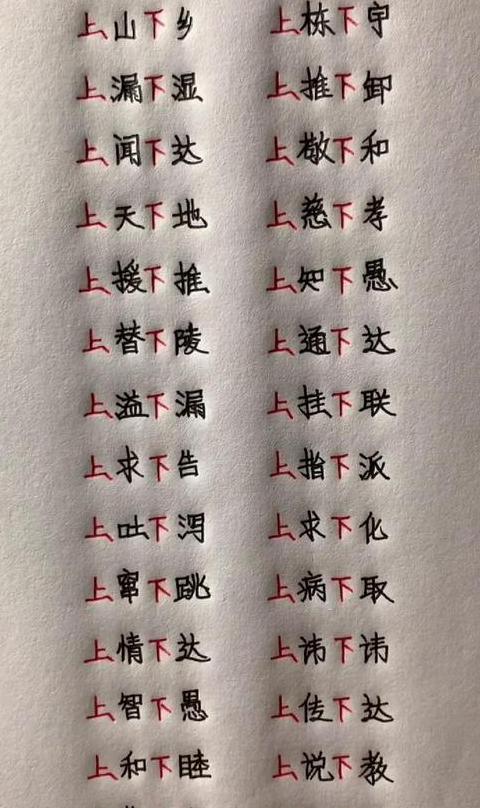 上山下乡 上栋下宇
上漏下湿 上推下卸
上闻下达 上敬下和
上天下地 上慈下孝
上援下推 上知下愚
上替下陵 上通下达
上溢下漏 上挂下联
上求下告 上指下派
上吐下泻 上求下化
上窜下跳 上病下取
上情下达 上讳下讳
上智下愚 上传下达
上和下睦 上说下教